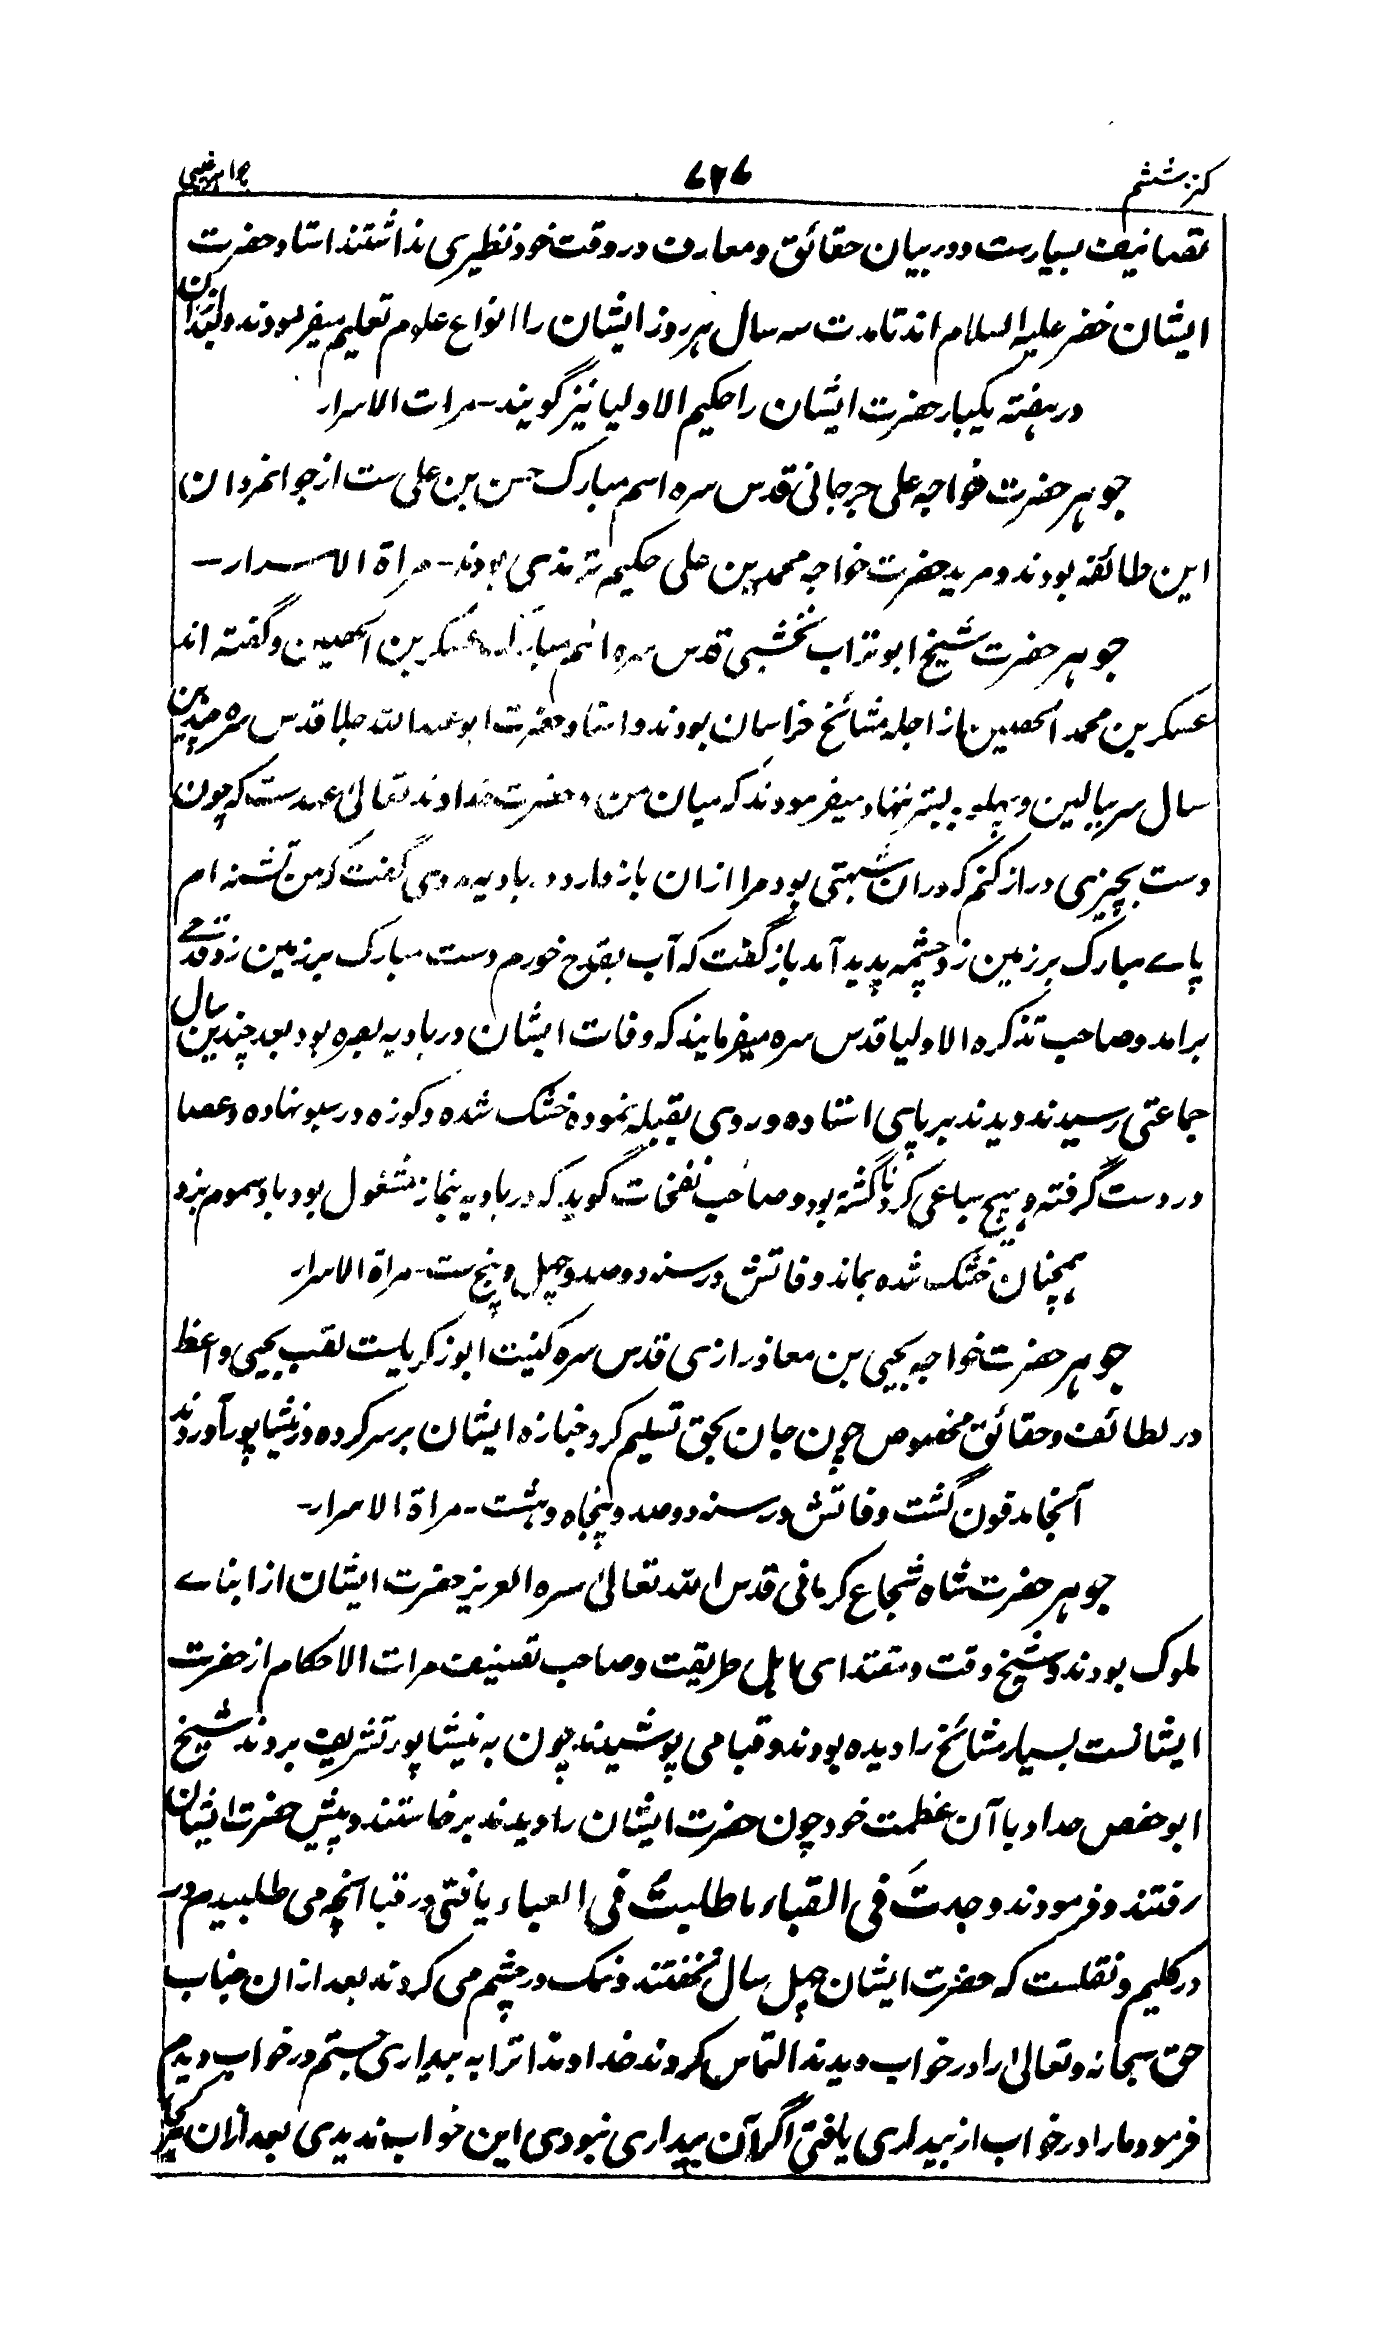 کنز ششم ۷۲۷ جواهر غیبی
تصانیف بسیارست و در بیان حقائق و معارف در وقت خود نظیری نداشتند استاد حضرت
ایشان خضر علیه السلام اند تا مدت سه سال هر روز ایشان را انواع علوم تعلیم میفرمودند و بعد ازان
در هفته یکبار حضرت ایشان را حکیم الاولیا نیز گویند۔ مرات الاسرار
جوهر حضرت خواجه علی جرجانی قدس سره اسم مبارک حسن بن علی ست از جوانمردان
این طائفه بودند و مرید حضرت خواجه محمد بن علی حکیم ترمذی بودند۔ مراة الاسرار۔
جوهر حضرت شیخ ابو تراب نخشبی قدس سره اسم مبارک عسکر بن الحصین و گفته اند
عسکر بن محمد الحصین از اجله مشائخ خراسان بودند و استاد حضرت ابو عبد الله جلا قدس سره چندین
سال سر ببالین و پهلو به بستر ننهاد میفرمودند که میان من و حضرت خداوند تعالی عهدست که چون
دست بچیزی دراز کنم که دران شبهتی بود مرا ازان باز دارد در بادیه مردی گفت که من تشنه ام
پاے مبارک بر زمین زد چشمه پدید آمد باز گفت که آب بقدح خورم دست مبارک بر زمین زد قدحے
برامد و صاحب تذکره الاولیا قدس سره میفرمایند که وفات ایشان در بادیه بصره بود بعد چندین سال
جماعتی رسیدند دیدند بر پای استاده و روی بقبله نموده خشک شده و کوزه در سبو نهاده و عصا
در دست گرفته و هیچ سباعی گرد ناگشته بود و صاحب نفخات گوید که در بادیه بنماز مشغول بود باد سموم بزد
همچنان خشک شده بماند وفاتش در سنه دو صد و چهل و پنج ست۔ مراة الاسرار
جوهر حضرت خواجه یحیی بن معاذ رازی قدس سره کنیت ابو زکریاست لقب یحیی واعظ
در لطائف و حقائق مخصوص چون جان بحق تسلیم کرد جنازه ایشان بر سر کرده در نیشاپور آوردند
آنجا مدفون گشت وفاتش در سنه دو صد و پنجاه و هشت۔ مراة الاسرار۔
جوهر حضرت شاه شجاع کرمانی قدس الله تعالی سره العزیز حضرت ایشان از ابناے
ملوک بودند و شیخ وقت و مقتدای اهل طریقت و صاحب تصنیف مرات الاحکام از حضرت
ایشانست بسیار مشائخ را دیده بودند و قبا می پوشیدند چون به نیشاپور تشریف بردند شیخ
ابو حفص حداد با آن عظمت خود چون حضرت ایشان را دیدند برخاستند و پیش حضرت ایشان
رفتند و فرمودند وجدت فی القباء ما طلبت فی العباء یافتی در قبا آنچه می طلبیدم در
در گلیم و نقلست که حضرت ایشان چهل سال نخفتند و نمک در چشم می کردند بعد ازان جناب
حق سبحانه و تعالی را در خواب دیدند التماس کردند خداوندا ترا به بیداری جستم در خواب دیدم
فرمود ما را در خواب از بیداری یافتی اگر آن بیداری نبودی این خواب ندیدی بعد ازان